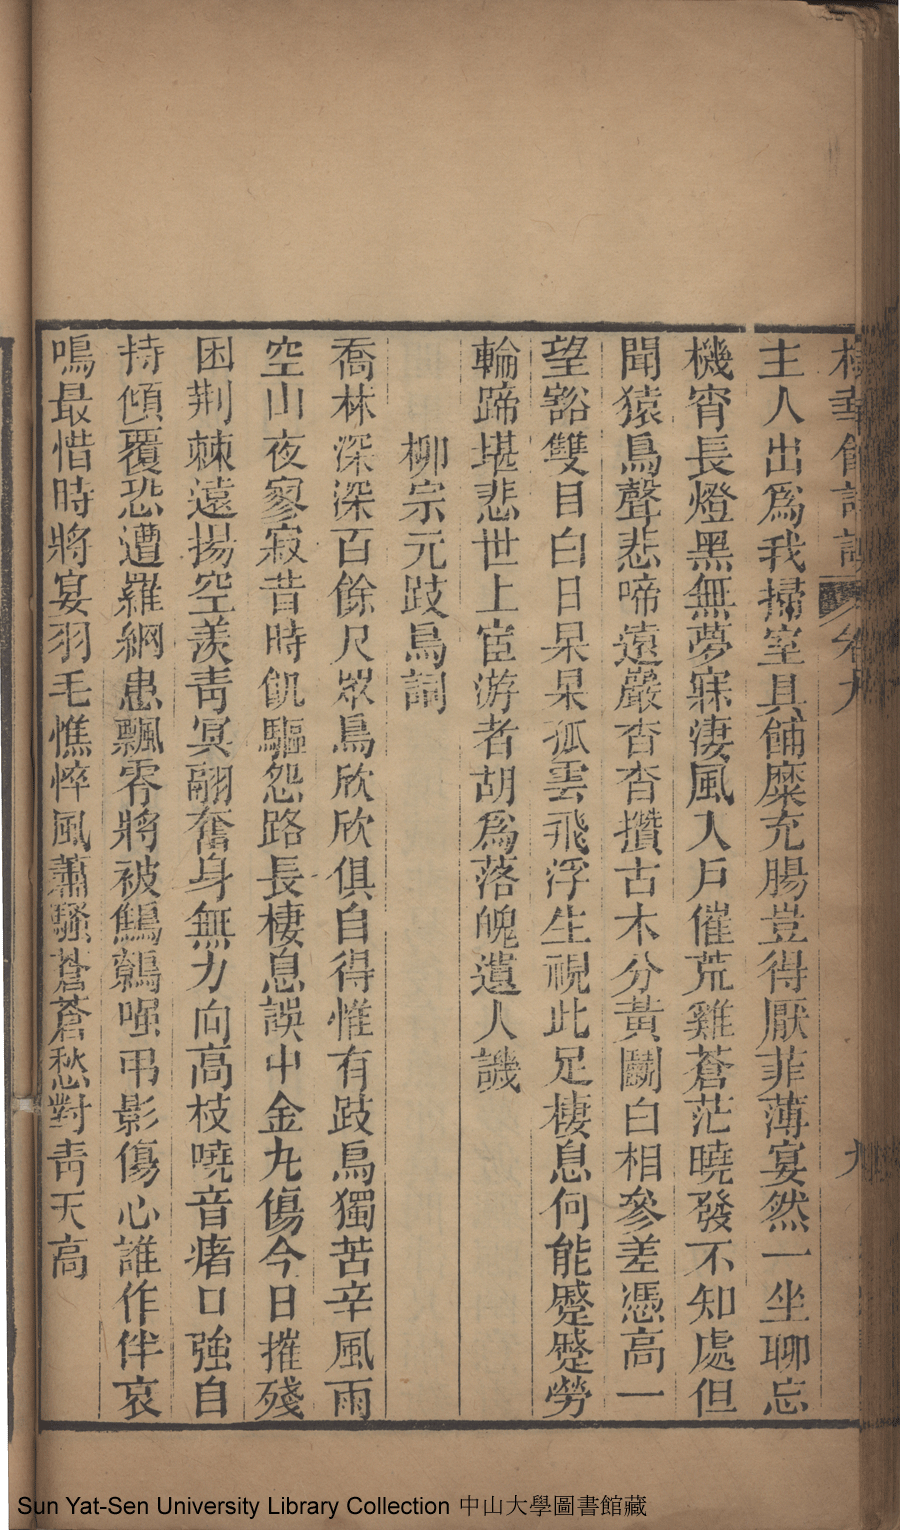 主人出爲我掃室具餔糜充腸豈得厭菲薄宴然一坐聊忘
機宵長燈黑無夢寐淒風入戶催荒雞蒼茫曉發不知處但
聞猿鳥聲悲啼遠巖杳杳攢古木分黃鬭白相參差憑高一
望豁雙目白日杲杲孤雲飛浮生視此足棲息何能蹙蹙勞
輪蹄堪悲世上宦游者胡爲落魄遺人譏
柳宗元跂鳥詞
喬林深深百餘尺眾鳥欣欣俱自得惟有跂鳥獨苦辛風雨
空山夜寥寂昔時飢驅怨路長棲息誤中金丸傷今日摧殘
困荆棘遠揚空羨靑冥翮奮身無力向高枝嘵音瘏口強自
持傾覆恐遭羅網患飄零將被鷦鷯嗤弔影傷心誰作伴哀
鳴最惜時將宴羽毛憔悴風蕭騷蒼蒼愁對靑天高
卷九
九
Sun Yat-Sen University Library Collection 中山大學圖書館藏